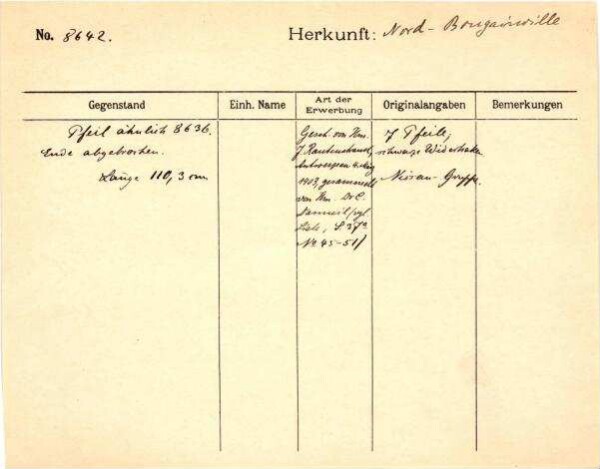 No. 8642.
Herkunft: Nord-Bougainville
Gegenstand
Einh. Name
Art der Erwerbung
Originalangaben
Bemerkungen
Pfeil ähnlich 8636.
Ende abgebrochen.
Länge 110,3 cm
Gesch. von Hrn.
J. Rautenstrauch,
Antwerpen
1903, gesammelt
von Hrn. Dr C.
/vgl.
Liste, S.
No. 45-51/
7 Pfeile,
schwarze Widerhaken